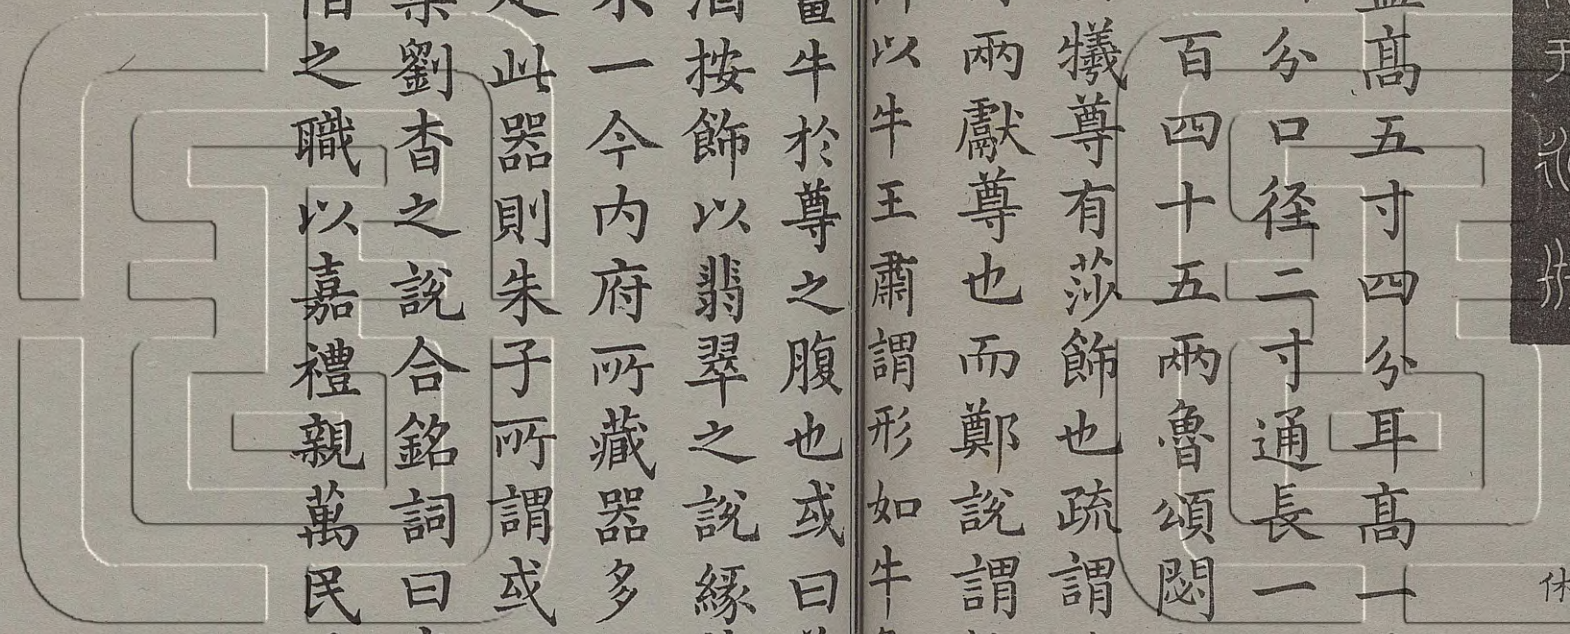 休
高五寸四分耳高一
分口径二寸通長一
百四十五兩魯頌閟
犧尊有莎飾也疏謂
兩獻尊也而鄭說謂
以牛王肅謂形如牛
牛於尊之腹也或曰
按飾以翡翠之說緣
一今内府所藏器多
此器則朱子所謂或
劉杳之說合銘詞曰
之職以嘉禮親萬民